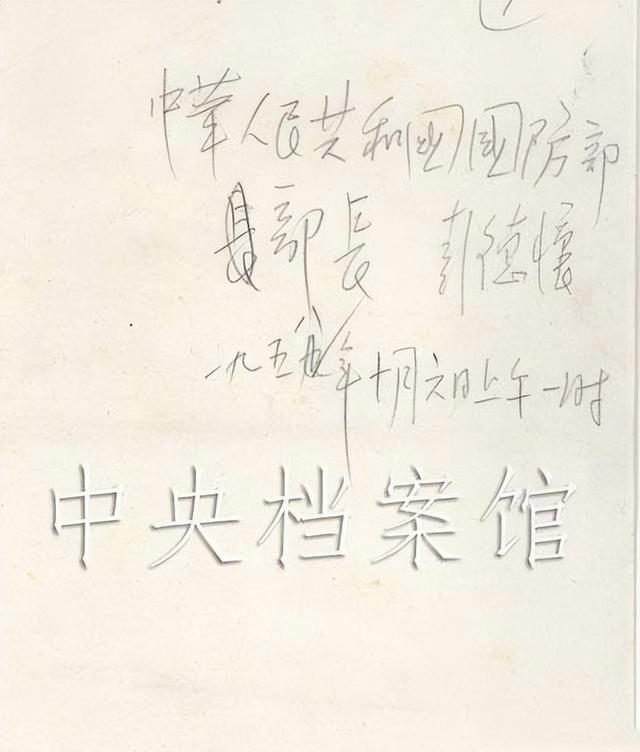 中華人民共和国國防部
部長 彭德懷
一九五八年十月六日上午一时
中央档案馆